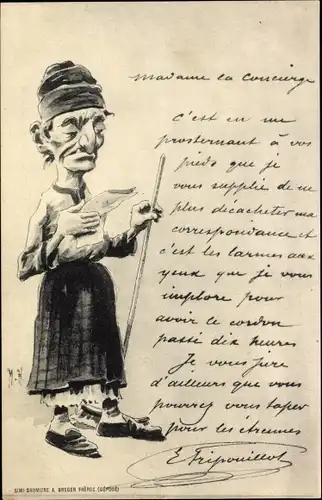 Madame la Concierge
c'est en me
prosternant à vos
pieds que je
vous supplie de ne
plus décacheter ma
correspondance et
c'est les larmes aux
yeux que je vous
implore pour
avoir le cordon
passé dix heures
Je vous jure
d'ailleurs que vous
pouvez vous taper
pour les étrennes
E. Fripouillot
SIMI-GRAVURE A. BREGER FRÈRES (DÉPOSÉ)